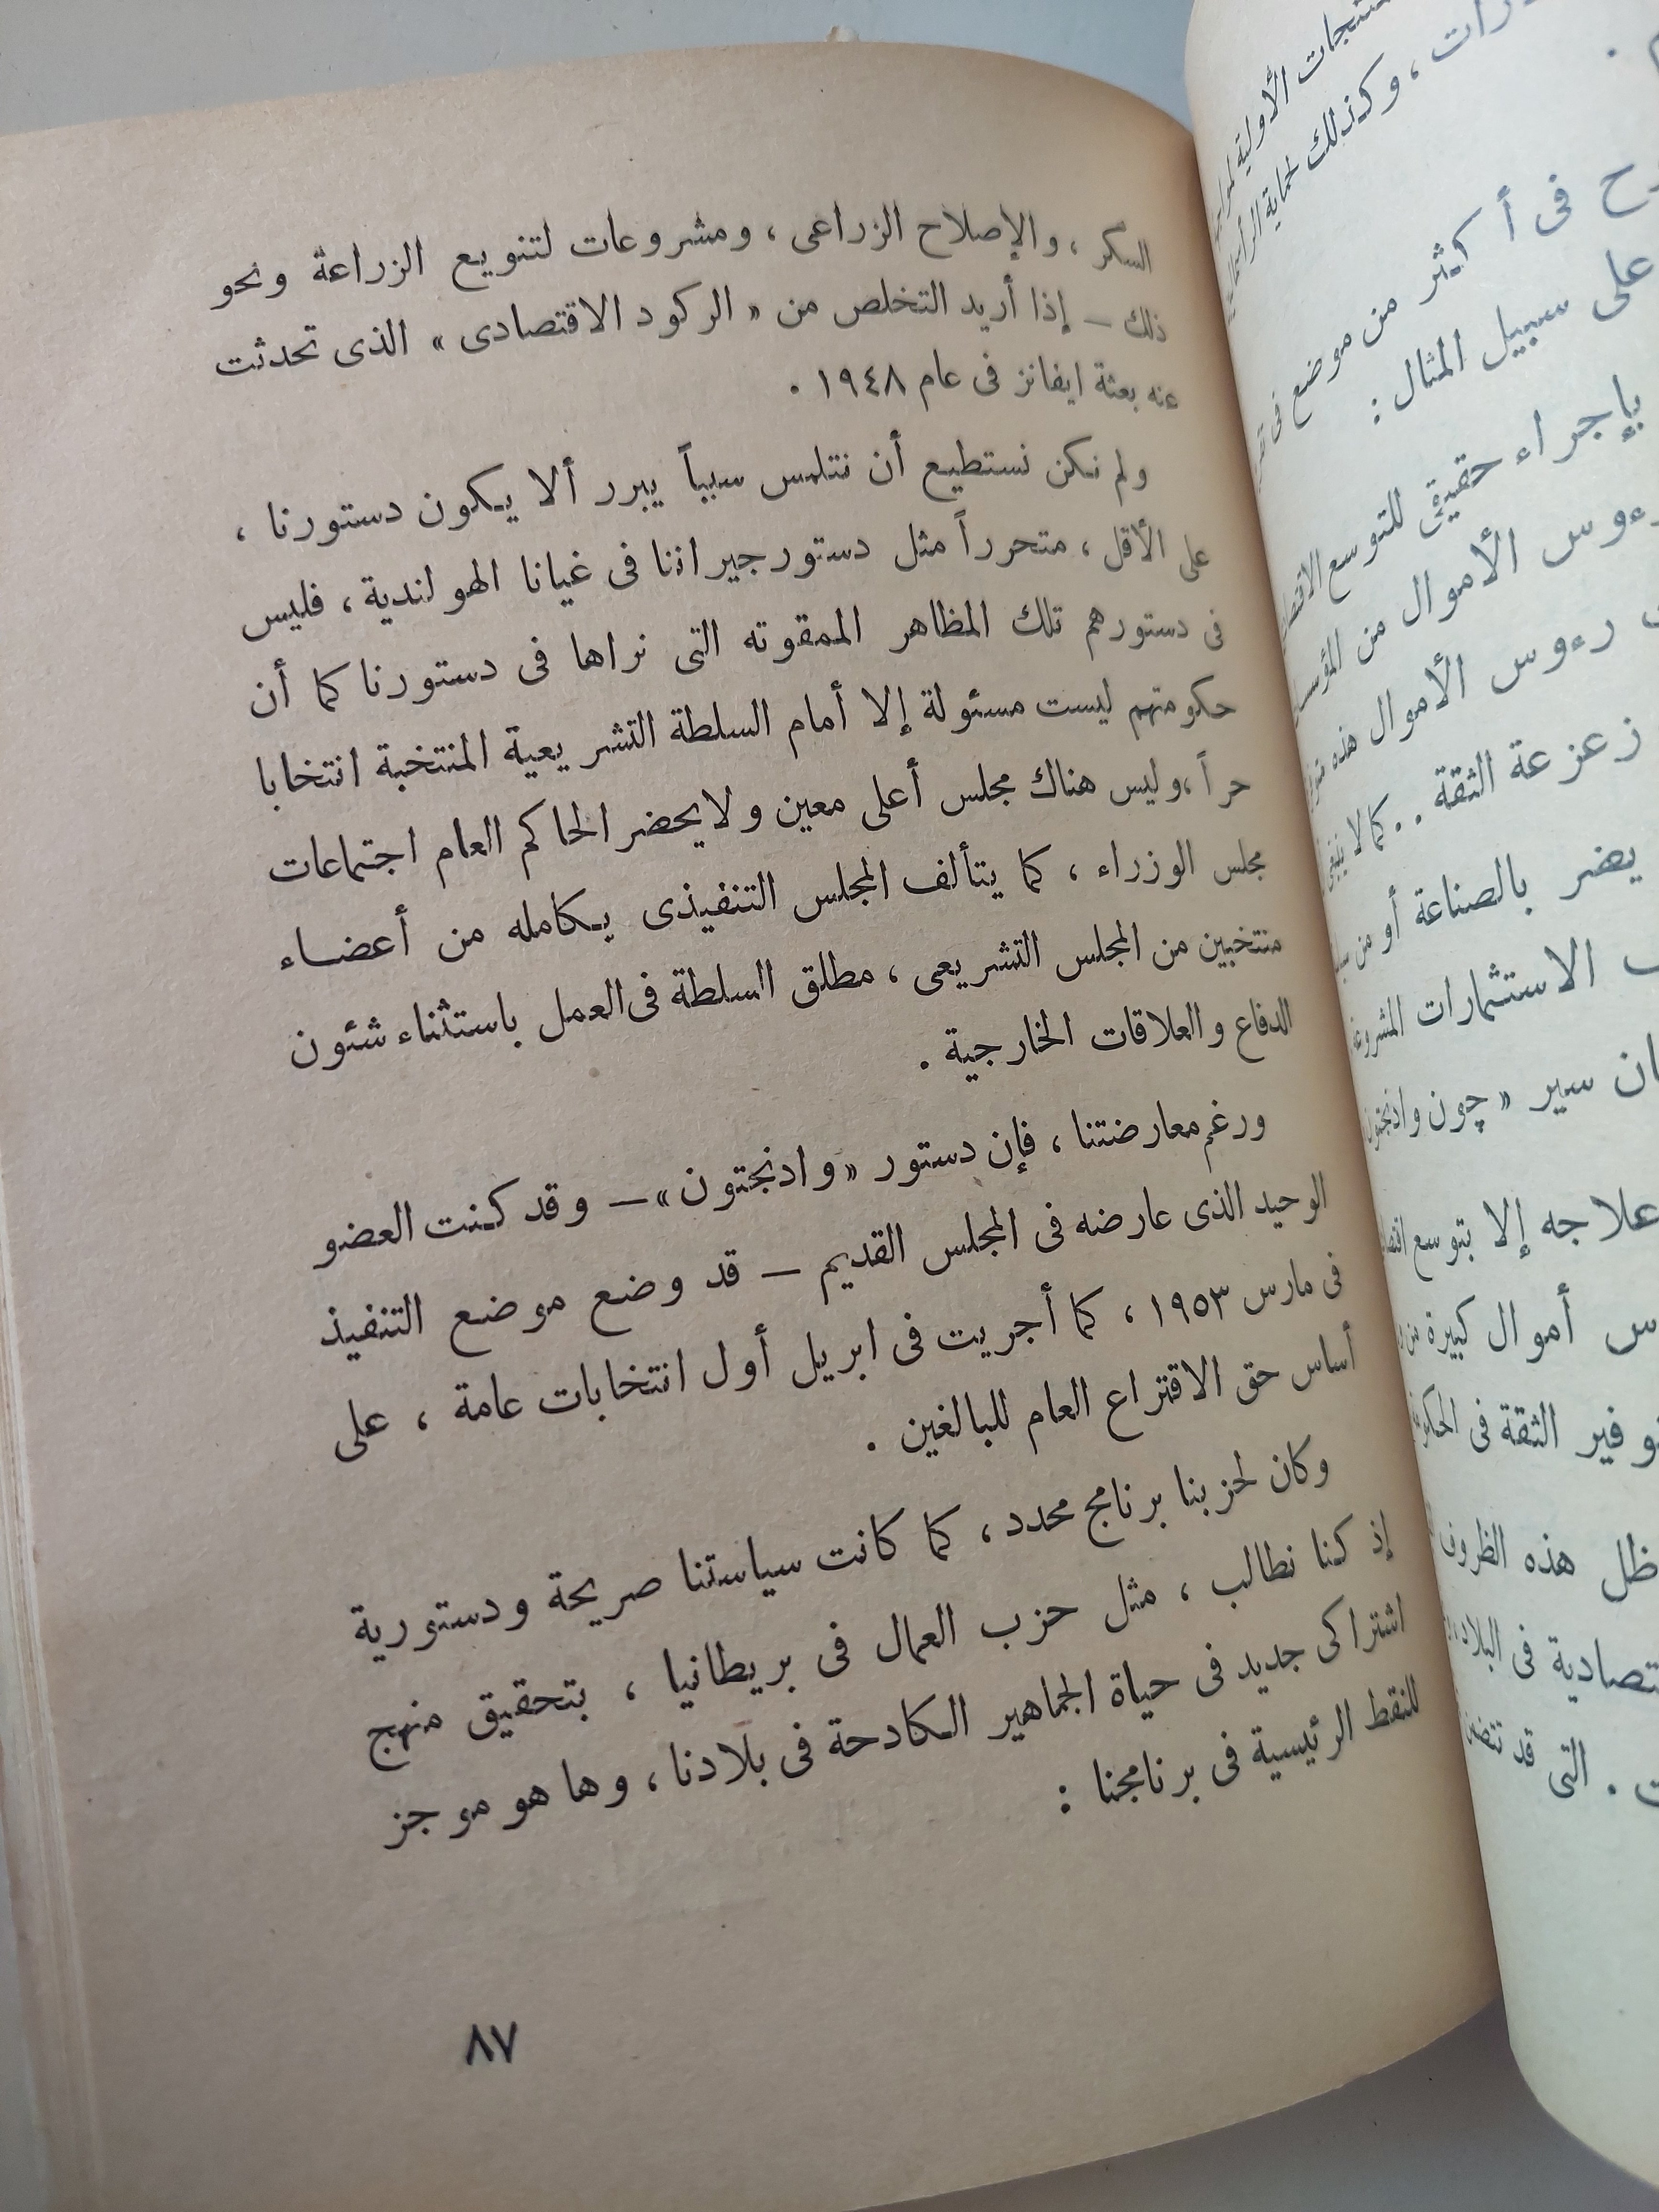 السكر ، والإصلاح الزراعى ، ومشروعات لتنويع الزراعة ونحو
ذلك – إذا أريد التخلص من « الركود الاقتصادى » الذى تحدثت
عنه بعثة ايفانز فى عام ١٩٤٨ .
ولم نكن نستطيع أن نتلمس سبباً يبرر ألا يكون دستورنا ،
على الأقل ، متحرراً مثل دستور جيراننا فى غيانا الهولندية ، فليس
فى دستورهم تلك المظاهر الممقوته التى نراها فى دستورنا كما أن
حكومتهم ليست مسئولة إلا أمام السلطة التشريعية المنتخبة انتخابا
حراً ، وليس هناك مجلس أعلى معين ولا يحضر الحاكم العام اجتماعات
مجلس الوزراء ، كما يتألف المجلس التنفيذى يكامله من أعضاء
منتخبين من المجلس التشريعى ، مطلق السلطة فى العمل باستثناء شئون
الدفاع والعلاقات الخارجية .
ورغم معارضتنا ، فإن دستور « وادنجتون » – وقد كنت العضو
الوحيد الذى عارضه فى المجلس القديم – قد وضع موضع التنفيذ
فى مارس ١٩٥٣ ، كما أجريت فى ابريل أول انتخابات عامة ، على
أساس حق الاقتراع العام للبالغين .
وكان لحزبنا برنامج محدد ، كما كانت سياستنا صريحة ودستورية
إذ كنا نطالب ، مثل حزب العمال فى بريطانيا ، بتحقيق منهج
اشتراكى جديد فى حياة الجماهير الكادحة فى بلادنا ، وها هو موجز
للنقط الرئيسية فى برنامجنا :
٨٧
الأولية
وكذلك لحماية
فى أكثر من موضع فى
على سبيل المثال :
بإجراء حقيقى للتوسع
الأموال من
رءوس الأموال هذه
زعزعة الثقة . . كما لا
يضر بالصناعة أو من
الاستثمارات المشروعة
سير « چون وادنجتون
علاجه إلا بتوسع
أموال كبيرة
الثقة فى
ظل هذه الظروف
فى البلاد
. التى قد